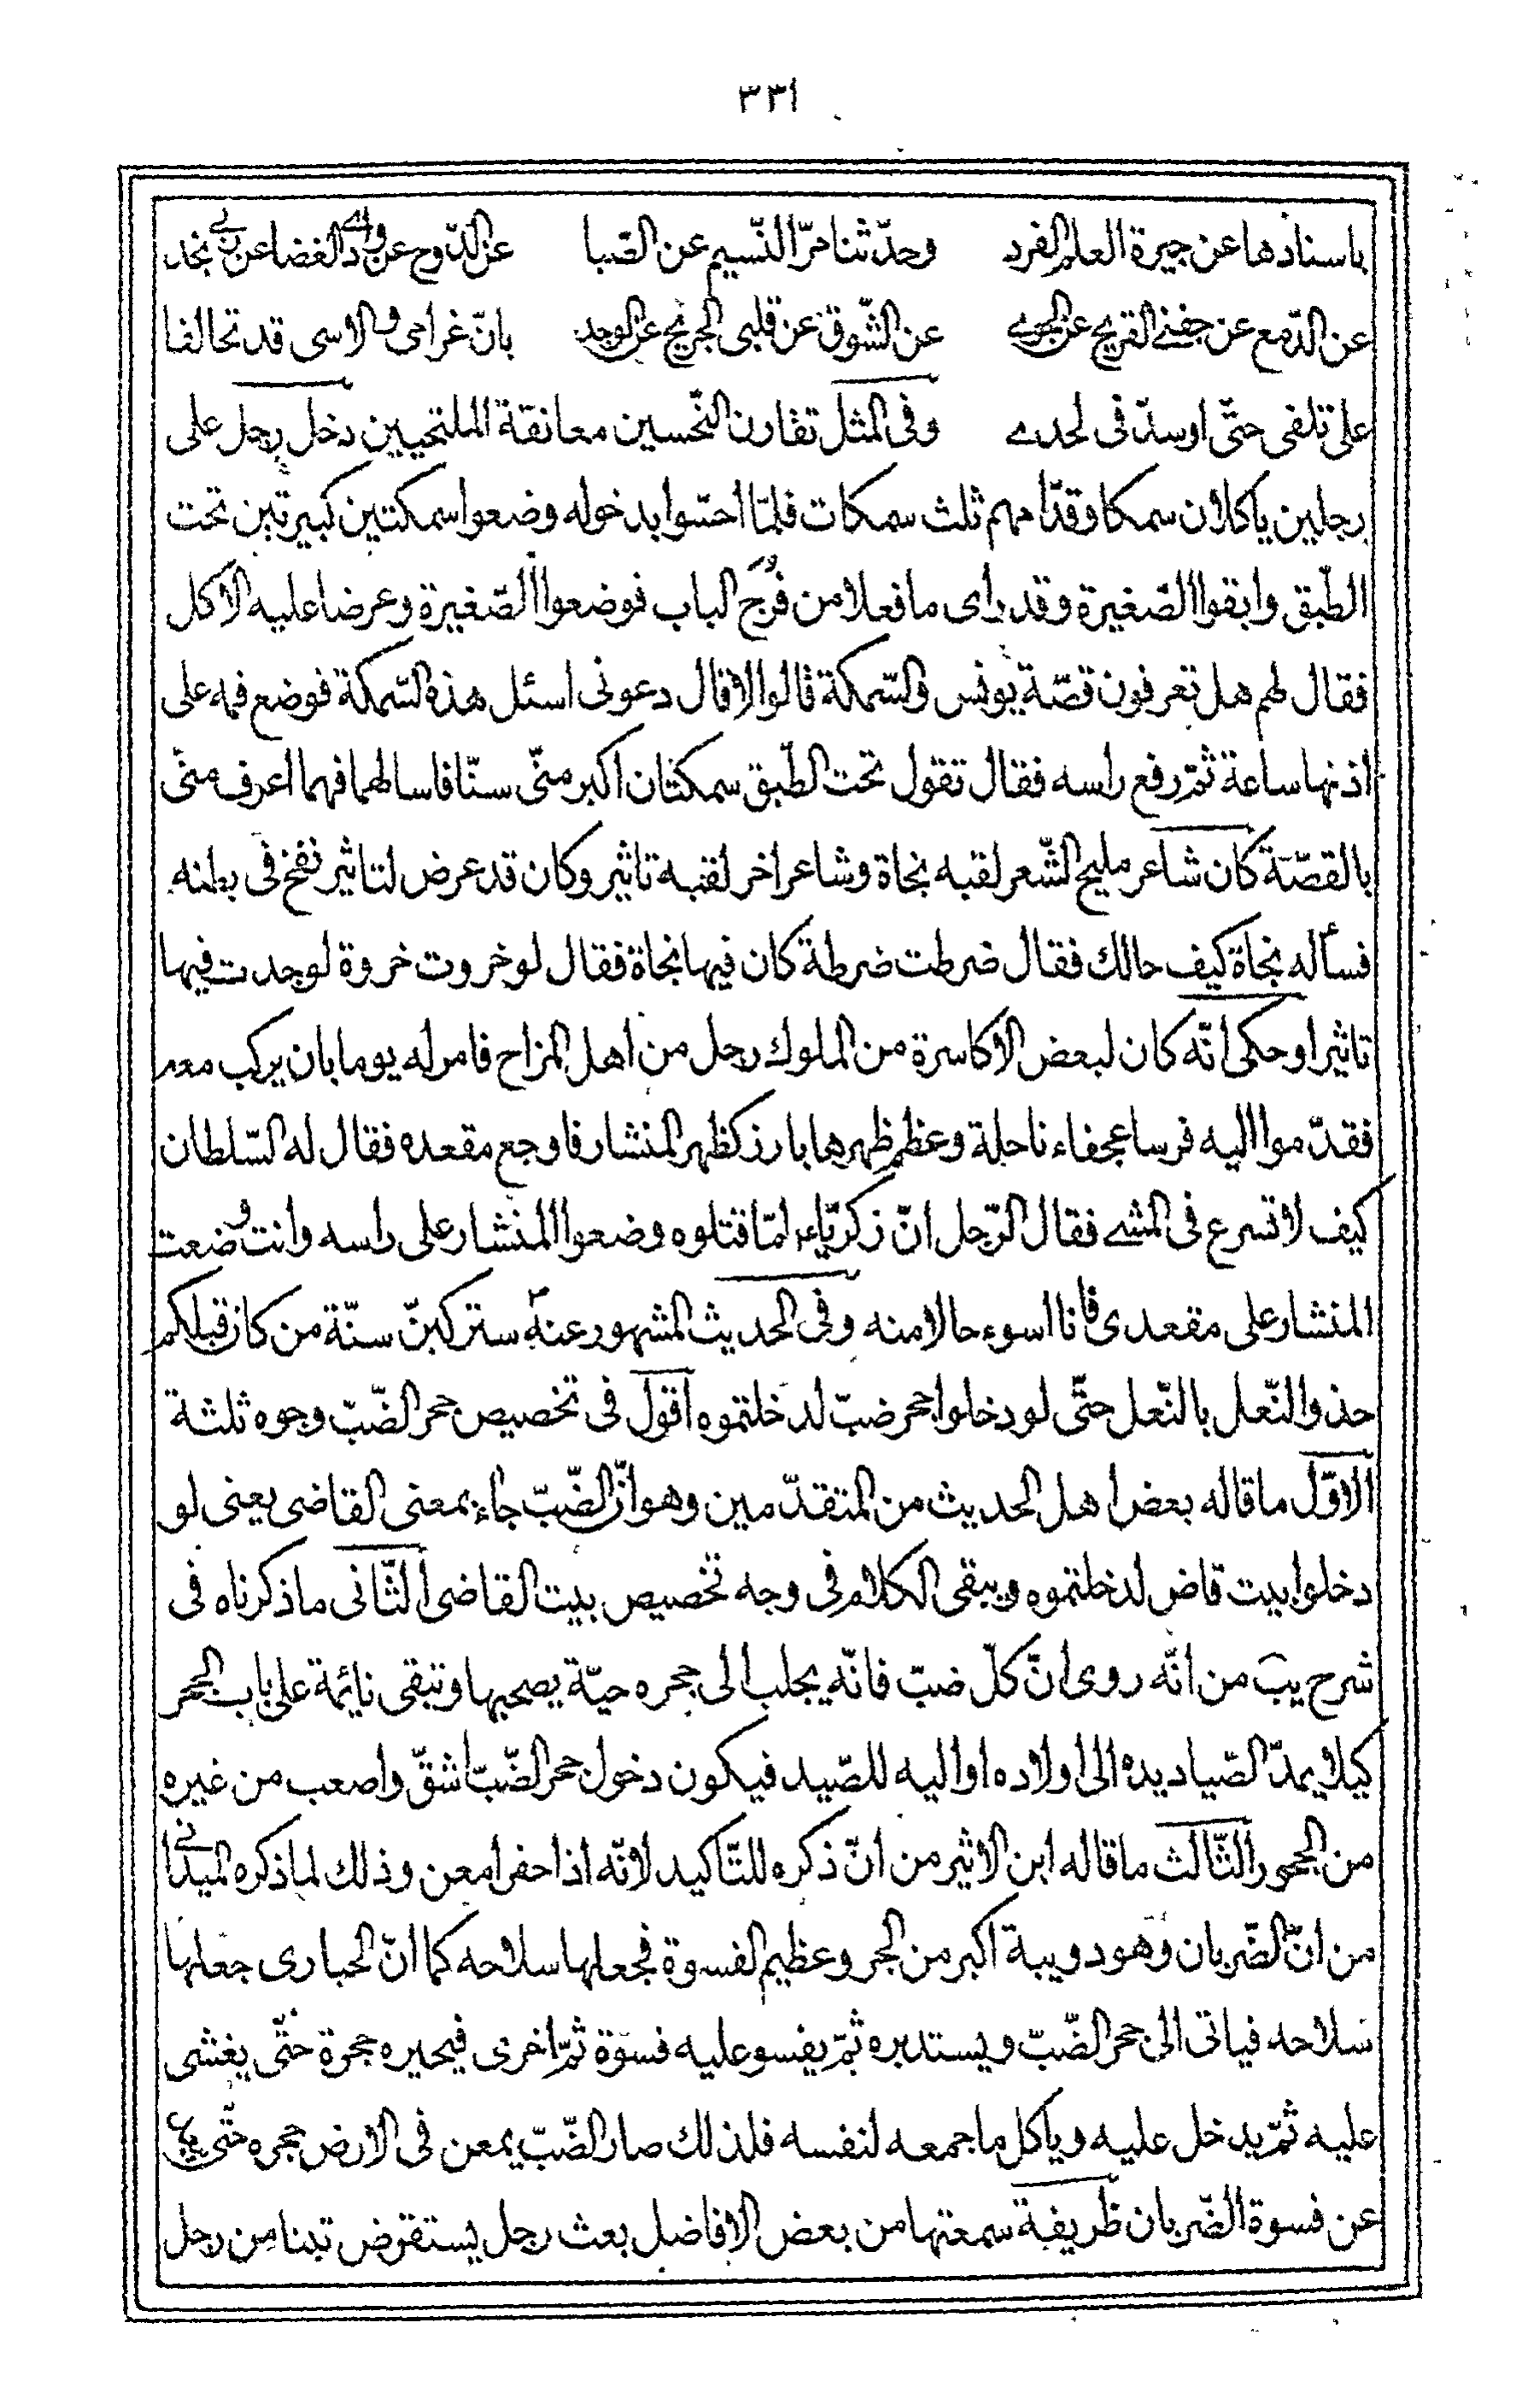 ٣٣١
باسنادها عن جيرة العلم الفرد وحدّثنا مرّ النّسيم عن الصّبا عن الدّوح عن وادى الغضا عن ربى نجد
عن الدّمع عن جفنى القريح عن الجوى عن الشّوق عن قلبى الجريح عن الوجد بانّ غرامى والاسى قد تحالفا
على تلفى حتّى اوسدّ فى لحدى وفى المثل تقارن النّحسين معانقة الملتحيين دخل رجل على
رجلين ياكلان سمكا وقدّامهم ثلث سمكات فلمّا احسّوا بدخوله وضعوا سمكتين كبيرتين تحت
الطّبق وابقوا الصّغيرة وقد راى ما فعلا من فُرَج الباب فوضعوا الصّغيرة وعرضا عليه الاكل
فقال لهم هل تعرفون قصّة يونس والسّمكة قالوا لا قال دعونى اسئل هذه السّمكة فوضع فمه على
اذنها ساعة ثمّ رفع راسه فقال تقول تحت الطّبق سمكتان اكبر منّى سنّا فاسالهما فهما اعرف منّى
بالقصّة كان شاعر مليح الشّعر لقبه نجاة وشاعر اخر لقبه تاثير وكان قد عرض لتاثير نفخ فى بطنه
فسأله نجاة كيف حالك فقال ضرطت ضرطة كان فيها نجاة فقال لو خروت خروة لوجدت فيها
تاثيرا وحكى انّه كان لبعض الاكاسرة من الملوك رجل من اهل المزاح فامر له يوما بان يركب معه
فقدّموا اليه فرسا عجفاء ناحلة وعظم ظهرها بارز كظهر المنشار فاوجع مقعده فقال له السّلطان
كيف لا تسرع فى المشى فقال الرّجل انّ زكريّاء لمّا قتلوه وضعوا المنشار على راسه وانت وضعت
المنشار على مقعدى فانا اسوء حالا منه وفى الحديث المشهور عنه ص ستركبنّ سنّة من كان قبلكم
حذو النّعل بالنّعل حتّى لو دخلوا جحر ضبّ لدخلتموه اقول فى تخصيص جحر الضّبّ وجوه ثلثة
الاوّل ما قاله بعض اهل الحديث من المتقدّمين وهو انّ الضّبّ جاء بمعنى القاضى يعنى لو
دخلوا بيت قاض لدخلتموه ويبقى الكلام فى وجه تخصيص بيت القاضى الثّانى ما ذكرناه فى
شرح يب من انّه روى انّ كلّ ضبّ فانّه يجلب الى جحره حيّة يصحبها وتبقى نائمة على باب الجحر
كيلا يمدّ الصّياد يده الى اولاده او اليه للصّيد فيكون دخول جحر الضّبّ اشقّ واصعب من غيره
من الجحور الثّالث ما قاله ابن الاثير من انّ ذكره للتّاكيد لانّه اذا حفر امعن وذلك لما ذكره الميدانى
من انّ الضّربان وهو دويبة اكبر من الجر وعظيم الفسوة فجعلها سلاحه كما انّ الحبارى جعلها
سلاحه فياتى الى جحر الضّبّ ويستدبره ثمّ يفسو عليه فسوة ثمّ اخرى فيحيره جحرة حتّى يغشى
عليه ثمّ يدخل عليه وياكل ما جمعه لنفسه فلذلك صار الضّبّ يمعن فى الارض جحره حتّى
عن فسوة الضّربان ظريفة سمعتها من بعض الافاضل بعث رجل يستقرض تبنا من رجل